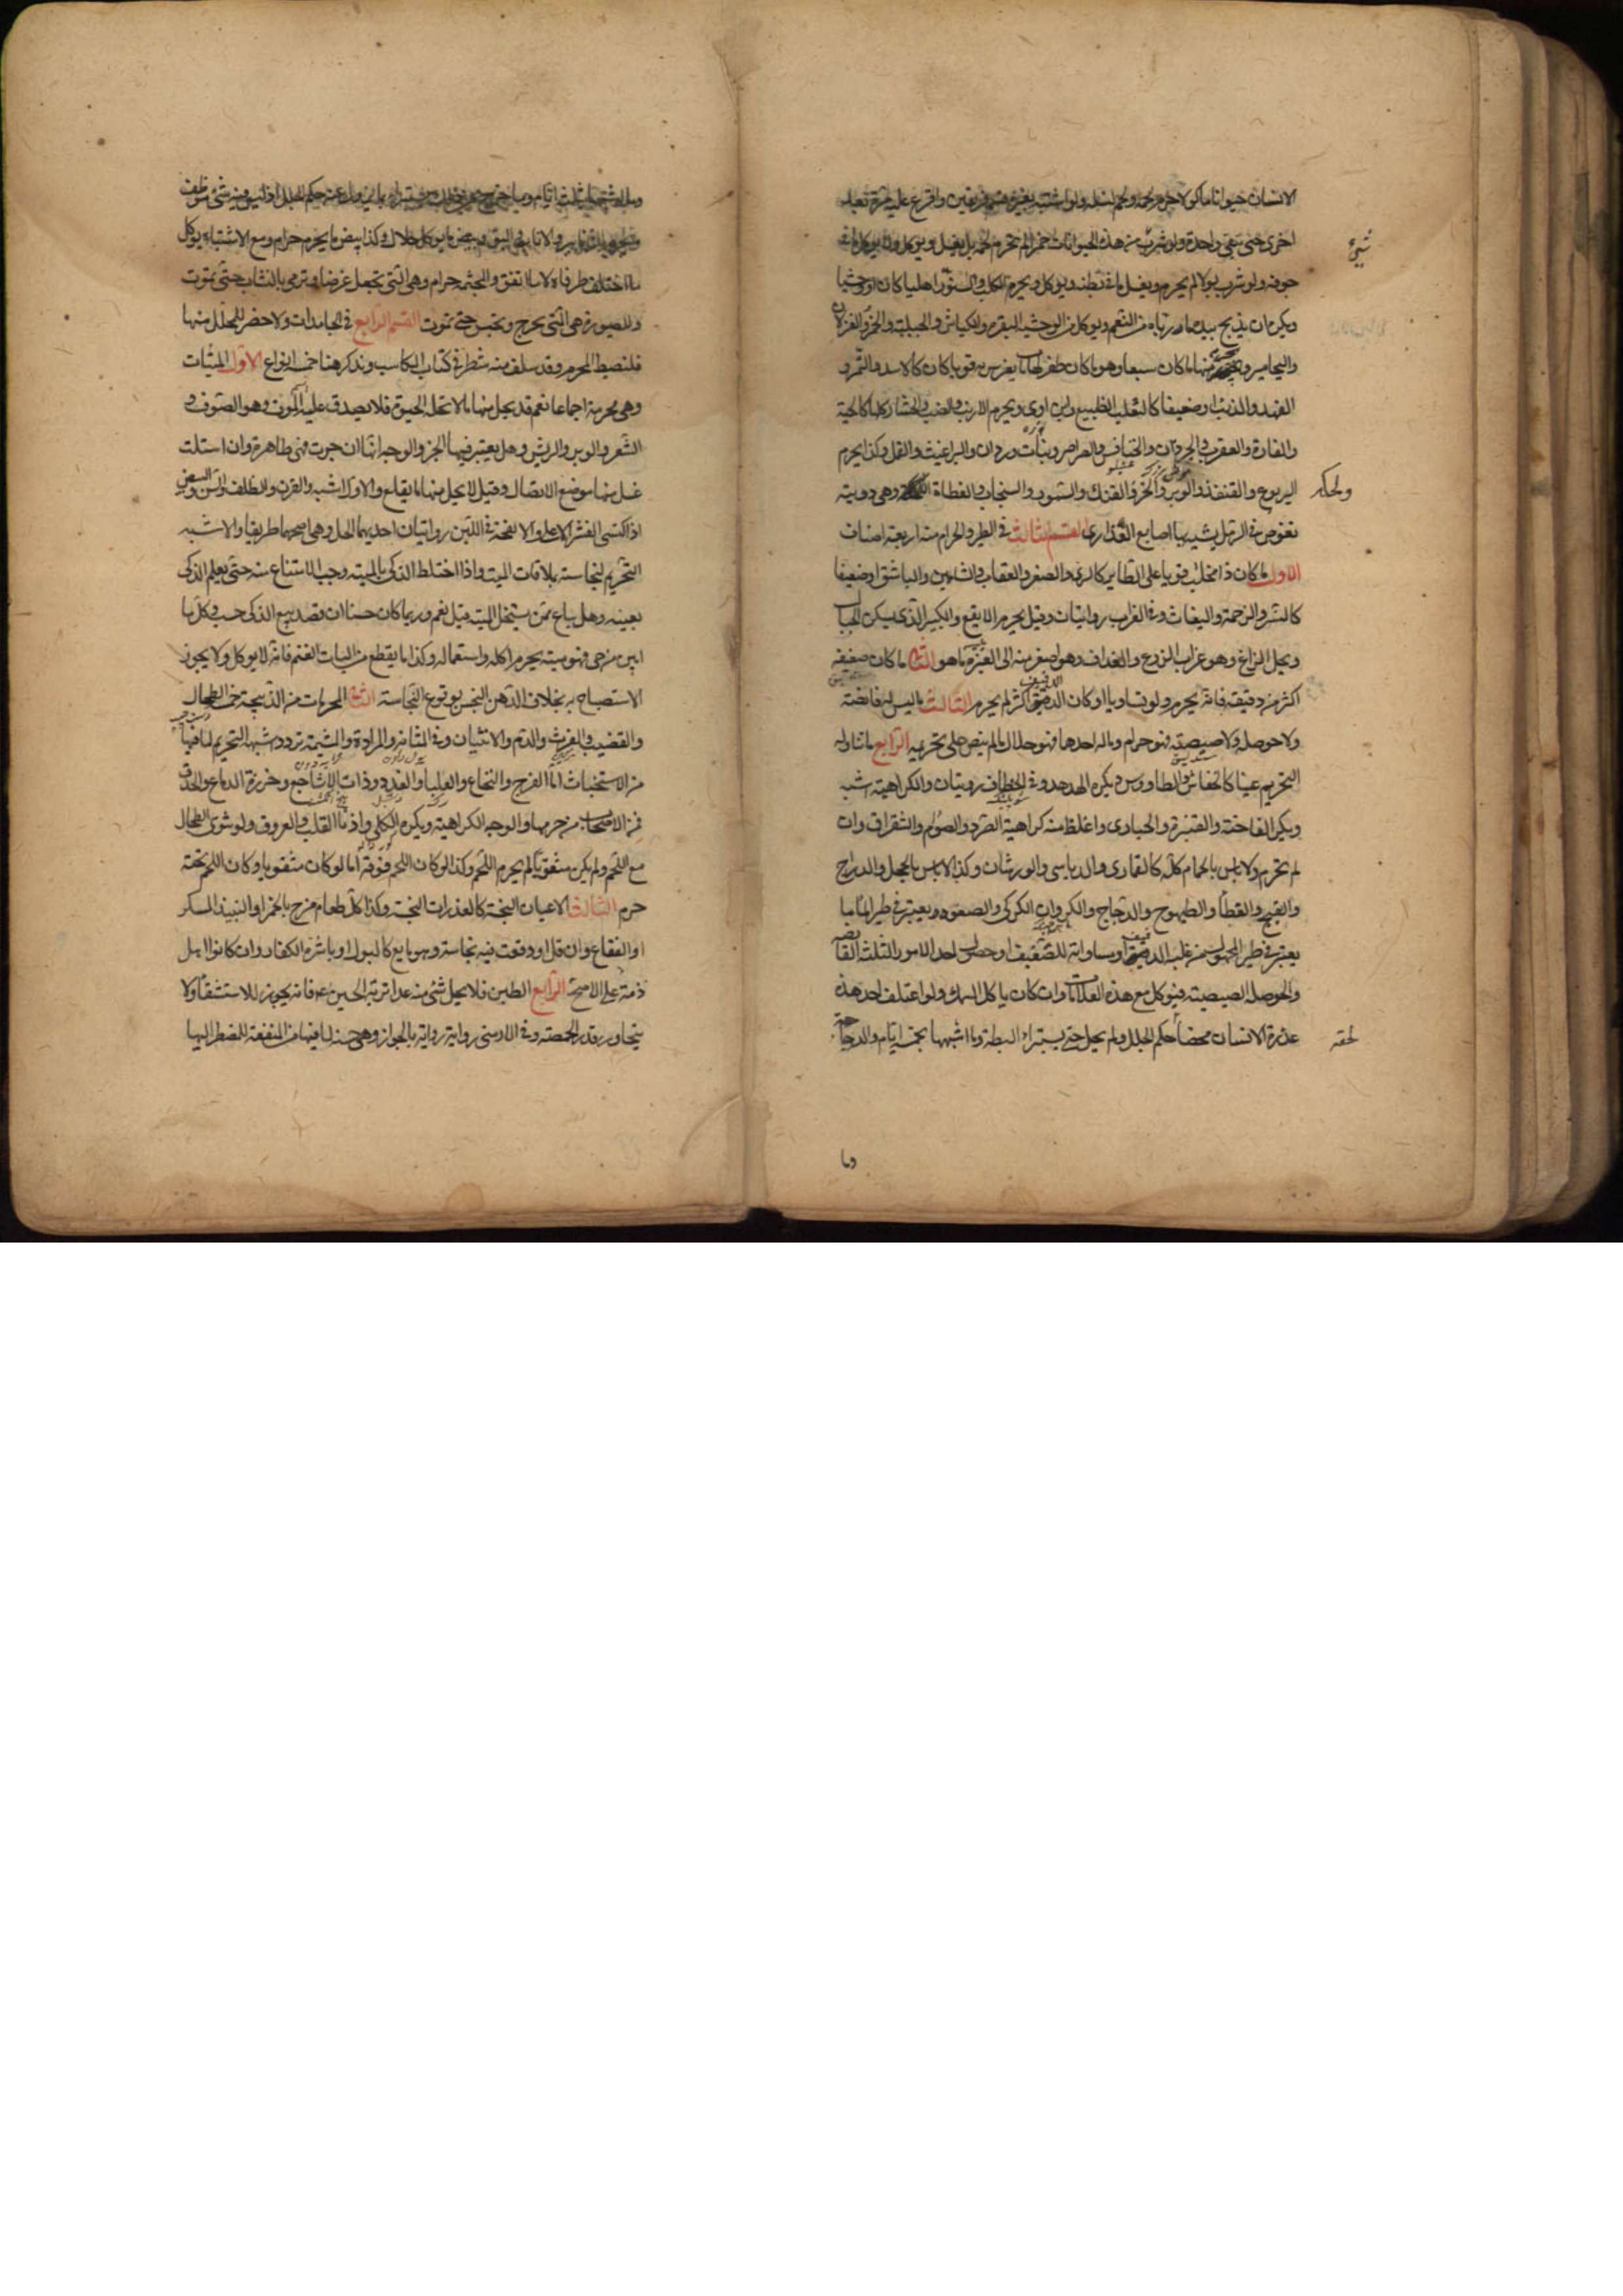 الانسان حيوانا ماكولا حرم لحمه ولحم نسله ولو اشتبه بغيره قسم فريقين واقرع عليه مرة بعد
اخرى حتى تبقى واحدة ولو شرب شئ من هذه الحيوانات خمرا لم يحرم لحمه بل يغسل ويوكل ولا يوكل ما في
جوفه ولو شرب بولا لم يحرم ويغسل ما في بطنه ويوكل ويحرم الكلب والسنور اهليا كان او وحشيا
ويكره ان يذبح بيده ما رباه من النعم ويوكل من الوحشية البقر والكباش الجبلية والحمر والغزلان
واليحامير ويحرم منها ما كان سبعا وهو ما كان له ظفر او ناب يفرس به قويا كان كالاسد والنمر و
الفهد والذئب او ضعيفا كالثعلب والضبع وابن اوى ويحرم الارنب والضب والحشار كلها كالحية
والفارة والعقرب والجرذان والخنافس والصراصر وبنات وردان والبراغيث والقمل وكذا يحرم
اليربوع والقنفذ والوبر والخز والفنك والسمور والسنجاب والعظاة واللحكة وهي دويبة
تغوص في الرمل يشبه بها اصابع العذارى القسم الثالث في الطير والحرام منه اربعة اصناف
الاول ما كان ذا مخلب قويا على الطاير كالبازى والصقر والعقاب والشاهين والباشق او ضعيفا
كالنسر والرخمة والبغاث وفي الغراب روايتان وقيل يحرم الابقع والكبير الذي يسكن الجبال
ويحل الزاغ وهو غراب الزرع والغداف وهو اصغر منه الى الغبرة ما هو الثاني ما كان صفيفه
اكثر من دفيفه فانه يحرم ولو تساويا او كان الدفيف اكثر لم يحرم الثالث ما ليس له قانصة
ولا حوصلة ولا صيصية فهو حرام وما له احدها فهو حلال ما لم ينص على تحريمه الرابع ما تناوله
التحريم عينا كالخفاش والطاووس ويكره الهدهد وفي الخطاف روايتان والكراهية اشبه
ويكره الفاختة والقبرة والحبارى واغلظ منه كراهية الصرد والصوام والشقراق وان
لم تحرم ولا باس بالحمام كله كالقمارى والدباسى والورشان وكذا لا باس بالحجل والدراج
والقبج والقطا والطيهوج والدجاج والكروان والكركى والصعوة ويعتبر في طير الماء ما
يعتبر في طير المجهول من غلبة الدفيف او مساواته للصفيف او حصول احد الامور الثلثة القانصة
والحوصلة الصيصية فيوكل مع هذه العلامات وان كان ياكل السمك ولو اعتلف احد هذه
عذرة الانسان محضا لحقه حكم الجلل ولم يحل حتى يستبراء البطة وما اشبهها بخمسة ايام والدجاجة
وما
وما اشبهها بثلثة ايام وما خرج عن ذلك يستبراء بما يزول عنه حكم الجلل اذ ليس فيه شئ موظف
ويحرم الزنابير والذباب والبق وبيض ما يوكل حلال وكذا بيض ما يحرم حرام ومع الاشتباه يوكل
ما اختلف طرفاه لا ما اتفق والمجثمة حرام وهي التي تجعل غرضا وترمى بالنشاب حتى تموت
والمصبورة هي التي تجرح وتحبس حتى تموت القسم الرابع في الجامدات ولا حصر للمحلل منها
فلنضبط المحرم وقد سلف منه شطر في كتاب المكاسب ونذكر هنا خمسة انواع الاول الميتات
وهي محرمة اجماعا نعم قد يحل منها ما لا تحله الحيوة فلا يصدق عليه الموت وهو الصوف و
الشعر والوبر والريش وهل يعتبر فيها الجز والوجه انها ان جزت فهي طاهرة وان استلت
غسل منها موضع الاتصال وقيل لا يحل منها ما يقلع والاول اشبه والقرن والظلف والسن والبيض
اذا اكتسى القشر الاعلى والانفحة وفي اللبن روايتان احديهما الحل وهي اصحهما طريقا والاشبه
التحريم لنجاسته بملاقات الميت واذا اختلط الذكى بالميتة وجب الامتناع منه حتى يعلم الذكى
بعينه وهل يباع ممن يستحل الميتة قيل نعم وربما كان حسنا ان قصد بيع الذكى حسب وكل ما
ابين من حي فهو ميتة يحرم اكله واستعماله وكذا ما يقطع من اليات الغنم فانه لا يوكل ولا يجوز
الاستصباح به بخلاف الدهن النجس بوقوع النجاسة الثاني المحرمات من الذبيحة خمسة الطحال
والقضيب والفرث والدم والانثيان وفي المثانة والمرارة والمشيمة تردد اشبهه التحريم لما فيها
من الاستخباث اما الفرج والنخاع والعلباء والغدد وذات الاشاجع وخرزة الدماغ والحدق
فمن الاصحاب من حرمها والوجه الكراهية ويكره الكلى واذنا القلب والعروق ولو شوى الطحال
مع اللحم ولم يكن مثقوبا لم يحرم اللحم وكذا لو كان اللحم فوقه اما لو كان مثقوبا وكان اللحم تحته
حرم الثالث الاعيان النجسة كالعذرات النجسة وكذا كل طعام مزج بالخمر او النبيذ المسكر
او الفقاع وان قل او وقعت فيه نجاسة وهو مايع كالبول او باشره الكفار وان كانوا اهل
ذمة على الاصح الرابع الطين فلا يحل شئ منه عدا تربة الحسين ع م فانه يجوز للاستشفاء ولا
يتجاوز قدر الحمصة وفي الارمنى رواية بالجواز وهي حسنة لما فيها من المنفعة للمضطر اليها